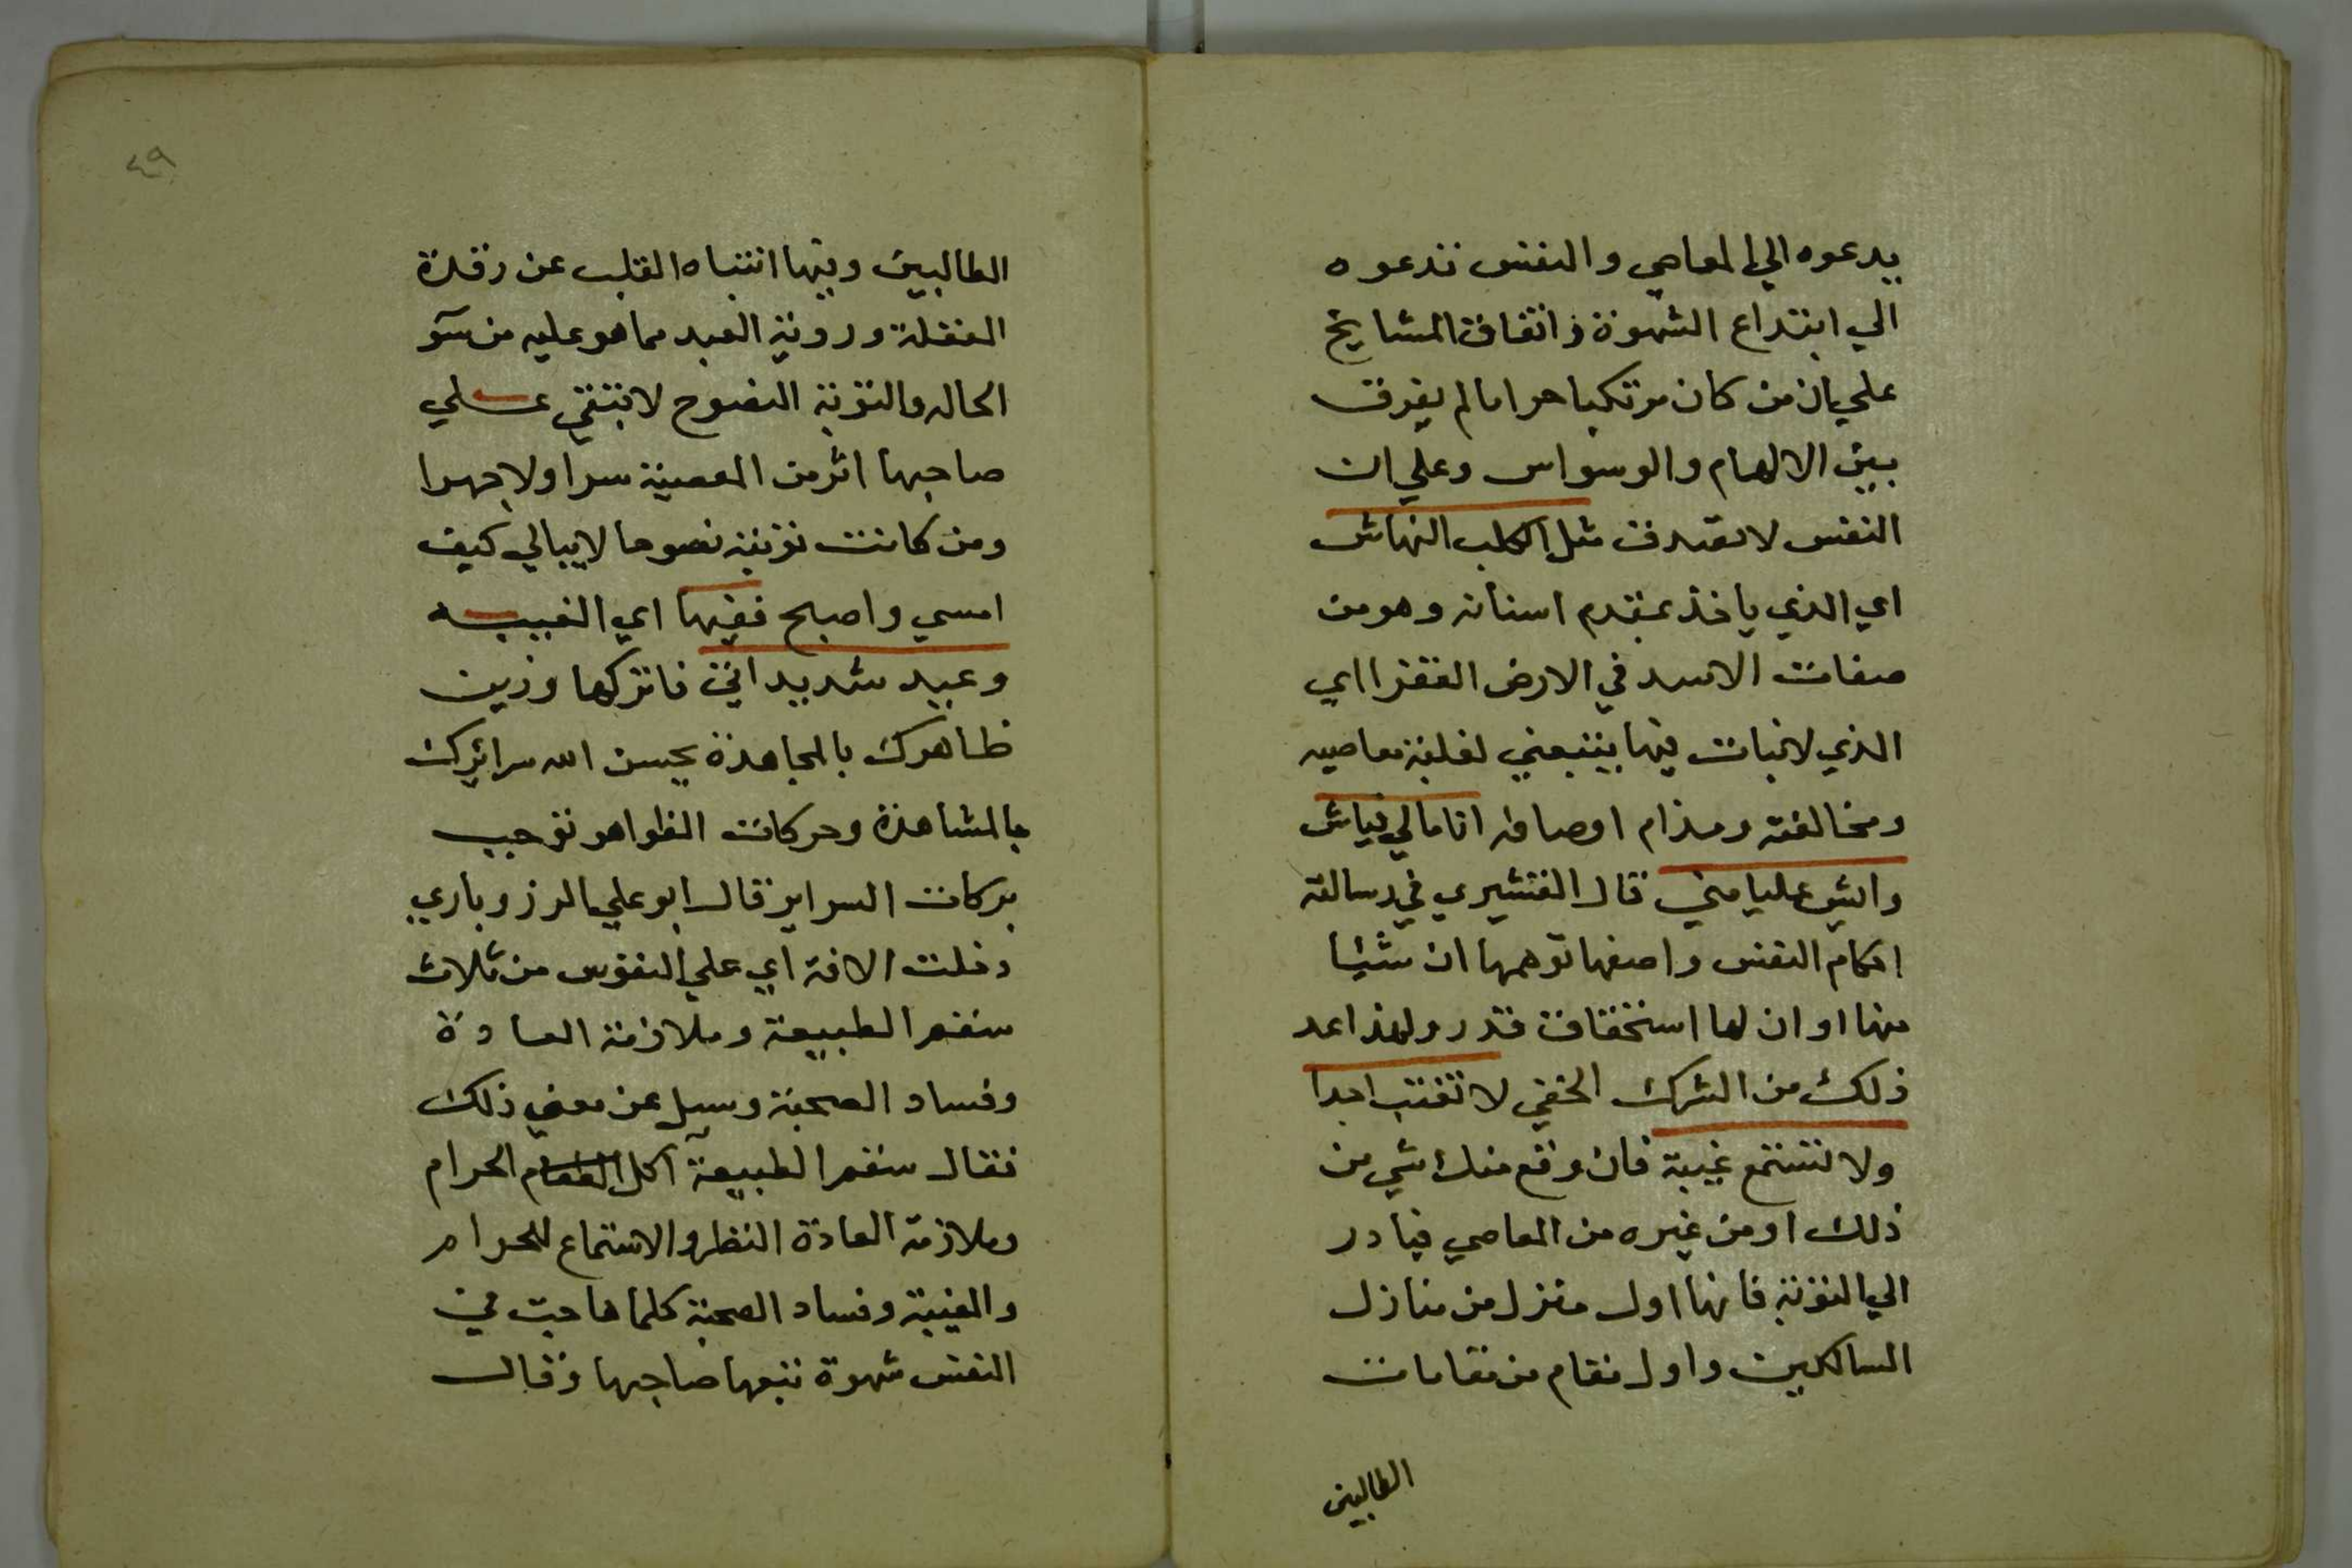 يدعوه الي المعاصي والنفس تدعوه
الي ابتداع الشهوة واتفاق المشايخ
علي ان من كان مرتكبا حراما لم يفرق
بين الالهام والوسواس وعلي ان
النفس لا تصدق مثل الكلب النهاش
اي الذي ياخذ بمقدم اسنانه وهو من
صفات الاسد في الارض القفرا اي
الذي لا نبات فيها يتبعني لغلبة معاصيه
ومخالفته ومذام اوصافه انا مالي نياش
وايش عليا مني قال القشيري في رسالته
احكام النفس واصفها توهمها ان شيا
منها او ان لها استحقاق قدر ولهذا عد
ذلك من الشرك الخفي لا تغتب احدا
ولا تستمع غيبة فان وقع منك شي من
ذلك او من غيره من المعاصي فبادر
الي التوبة فانها اول منزل من منازل
السالكين واول مقام من مقامات
الطالبين
٤٩
الطالبين وفيها انتباه القلب عن رقدة
الغفلة وروية العبد مما هو عليه من سو
الحاله والتوبة النصوح لا تبقي علي
صاحبها اثر من المعصية سرا ولا جهرا
ومن كانت توبته نصوحا لا يبالي كيف
امسي واصبح ففيها اي الغيبه
وعيد شديد اتي فاتركها وزين
ظاهرك بالمجاهدة يحسن الله سرائرك
بالمشاهدة وحركات الظواهر توجب
بركات السراير قال ابو علي الرزوباري
دخلت الافة اي علي النفوس من ثلاث
سقم الطبيعة وملازمة العادة
وفساد الصحبة وسيل عن معني ذلك
فقال سقم الطبيعة آكل الطعام الحرام
وملازمة العادة النظر والاستماع للحرام
والغيبة وفساد الصحبة كلما هاجت في
النفس شهوة تتبعها صاحبها وقال